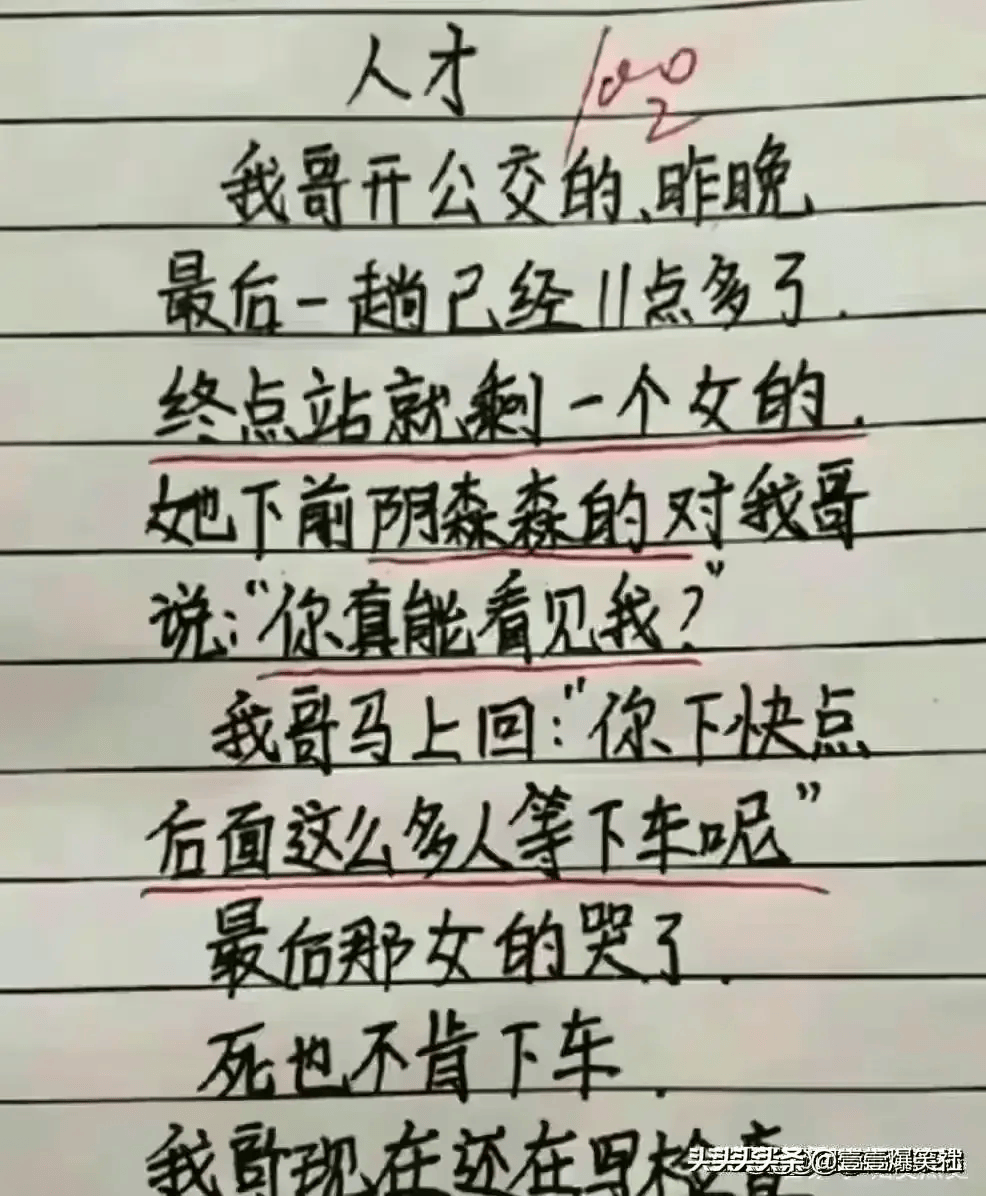 人才
100
我哥开公交的、昨晚
最后一趟已经11点多了.
终点站就剩一个女的.
她下前阴森森的对我哥
说:“你真能看见我?”
我哥马上回:“你下快点
后面这么多人等下车呢”
最后那女的哭了.
死也不肯下车.
我哥现在还在写检查
头头头头条@壹壹爆笑社